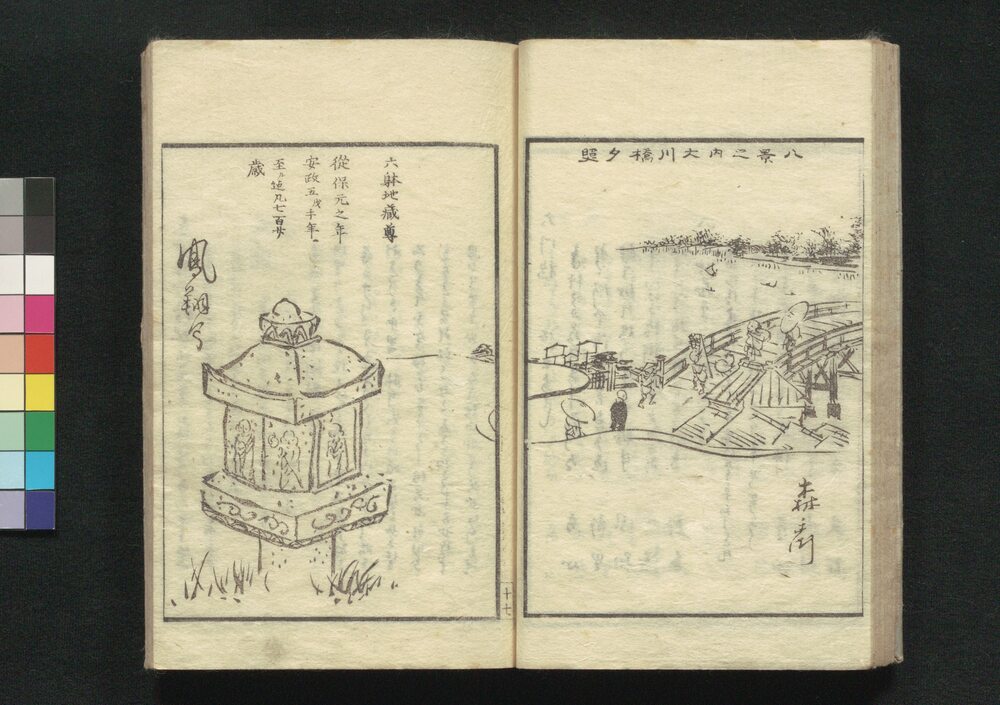 八景之内大川橋夕照
森斎
六躰地蔵尊
從保元之年
安政五戊午年ニ
至リ迠凡七百廿
歳
鳳翔写
十七